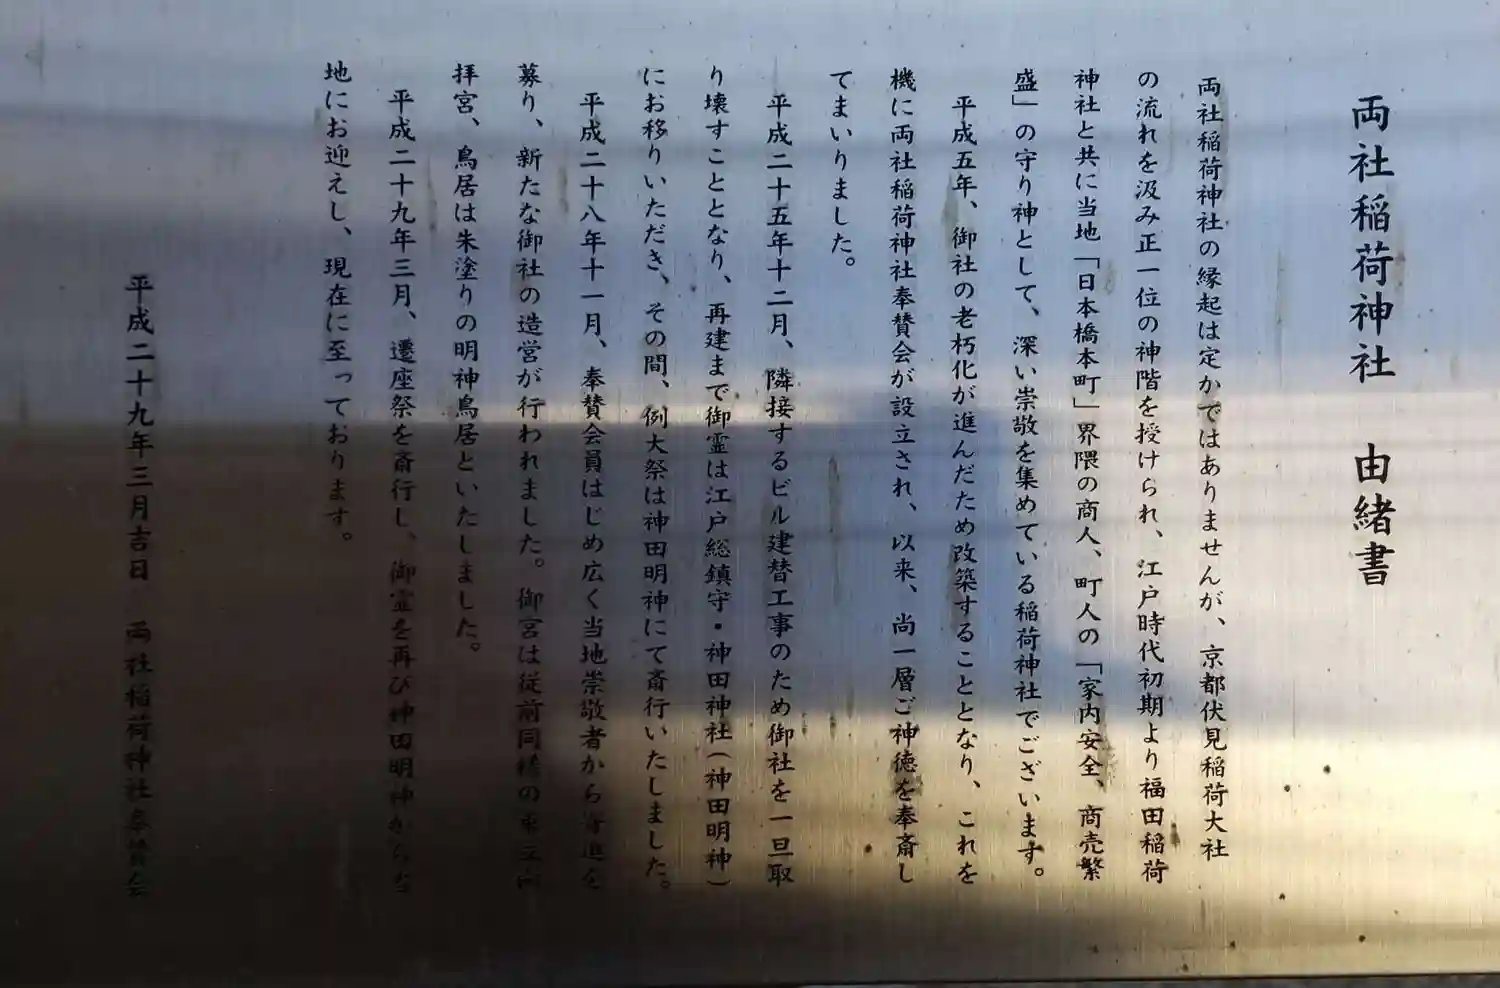 両社稲荷神社　由緒書
両社稲荷神社の縁起は定かではありませんが、京都伏見稲荷大社
の流れを汲み正一位の神階を授けられ、江戸時代初期より福田稲荷
神社と共に当地「日本橋本町」界隈の商人、町人の「家内安全、商売繁
盛」の守り神として、深い崇敬を集めている稲荷神社でございます。
平成五年、御社の老朽化が進んだため改築することとなり、これを
機に両社稲荷神社奉賛会が設立され、以来、尚一層ご神徳を奉斎し
てまいりました。
平成二十五年十二月、隣接するビル建替工事のため御社を一旦取
り壊すこととなり、再建まで御霊は江戸総鎮守・神田神社（神田明神）
にお移りいただき、その間、例大祭は神田明神にて斎行いたしました。
平成二十八年十一月、奉賛会員はじめ広く当地崇敬者から寄進を
募り、新たな御社の造営が行われました。御宮は従前同様の
拝宮、鳥居は朱塗りの明神鳥居といたしました。
平成二十九年三月、遷座祭を斎行し、御霊を再び神田明神から当
地にお迎えし、現在に至っております。
平成二十九年三月吉日　両社稲荷神社奉賛会